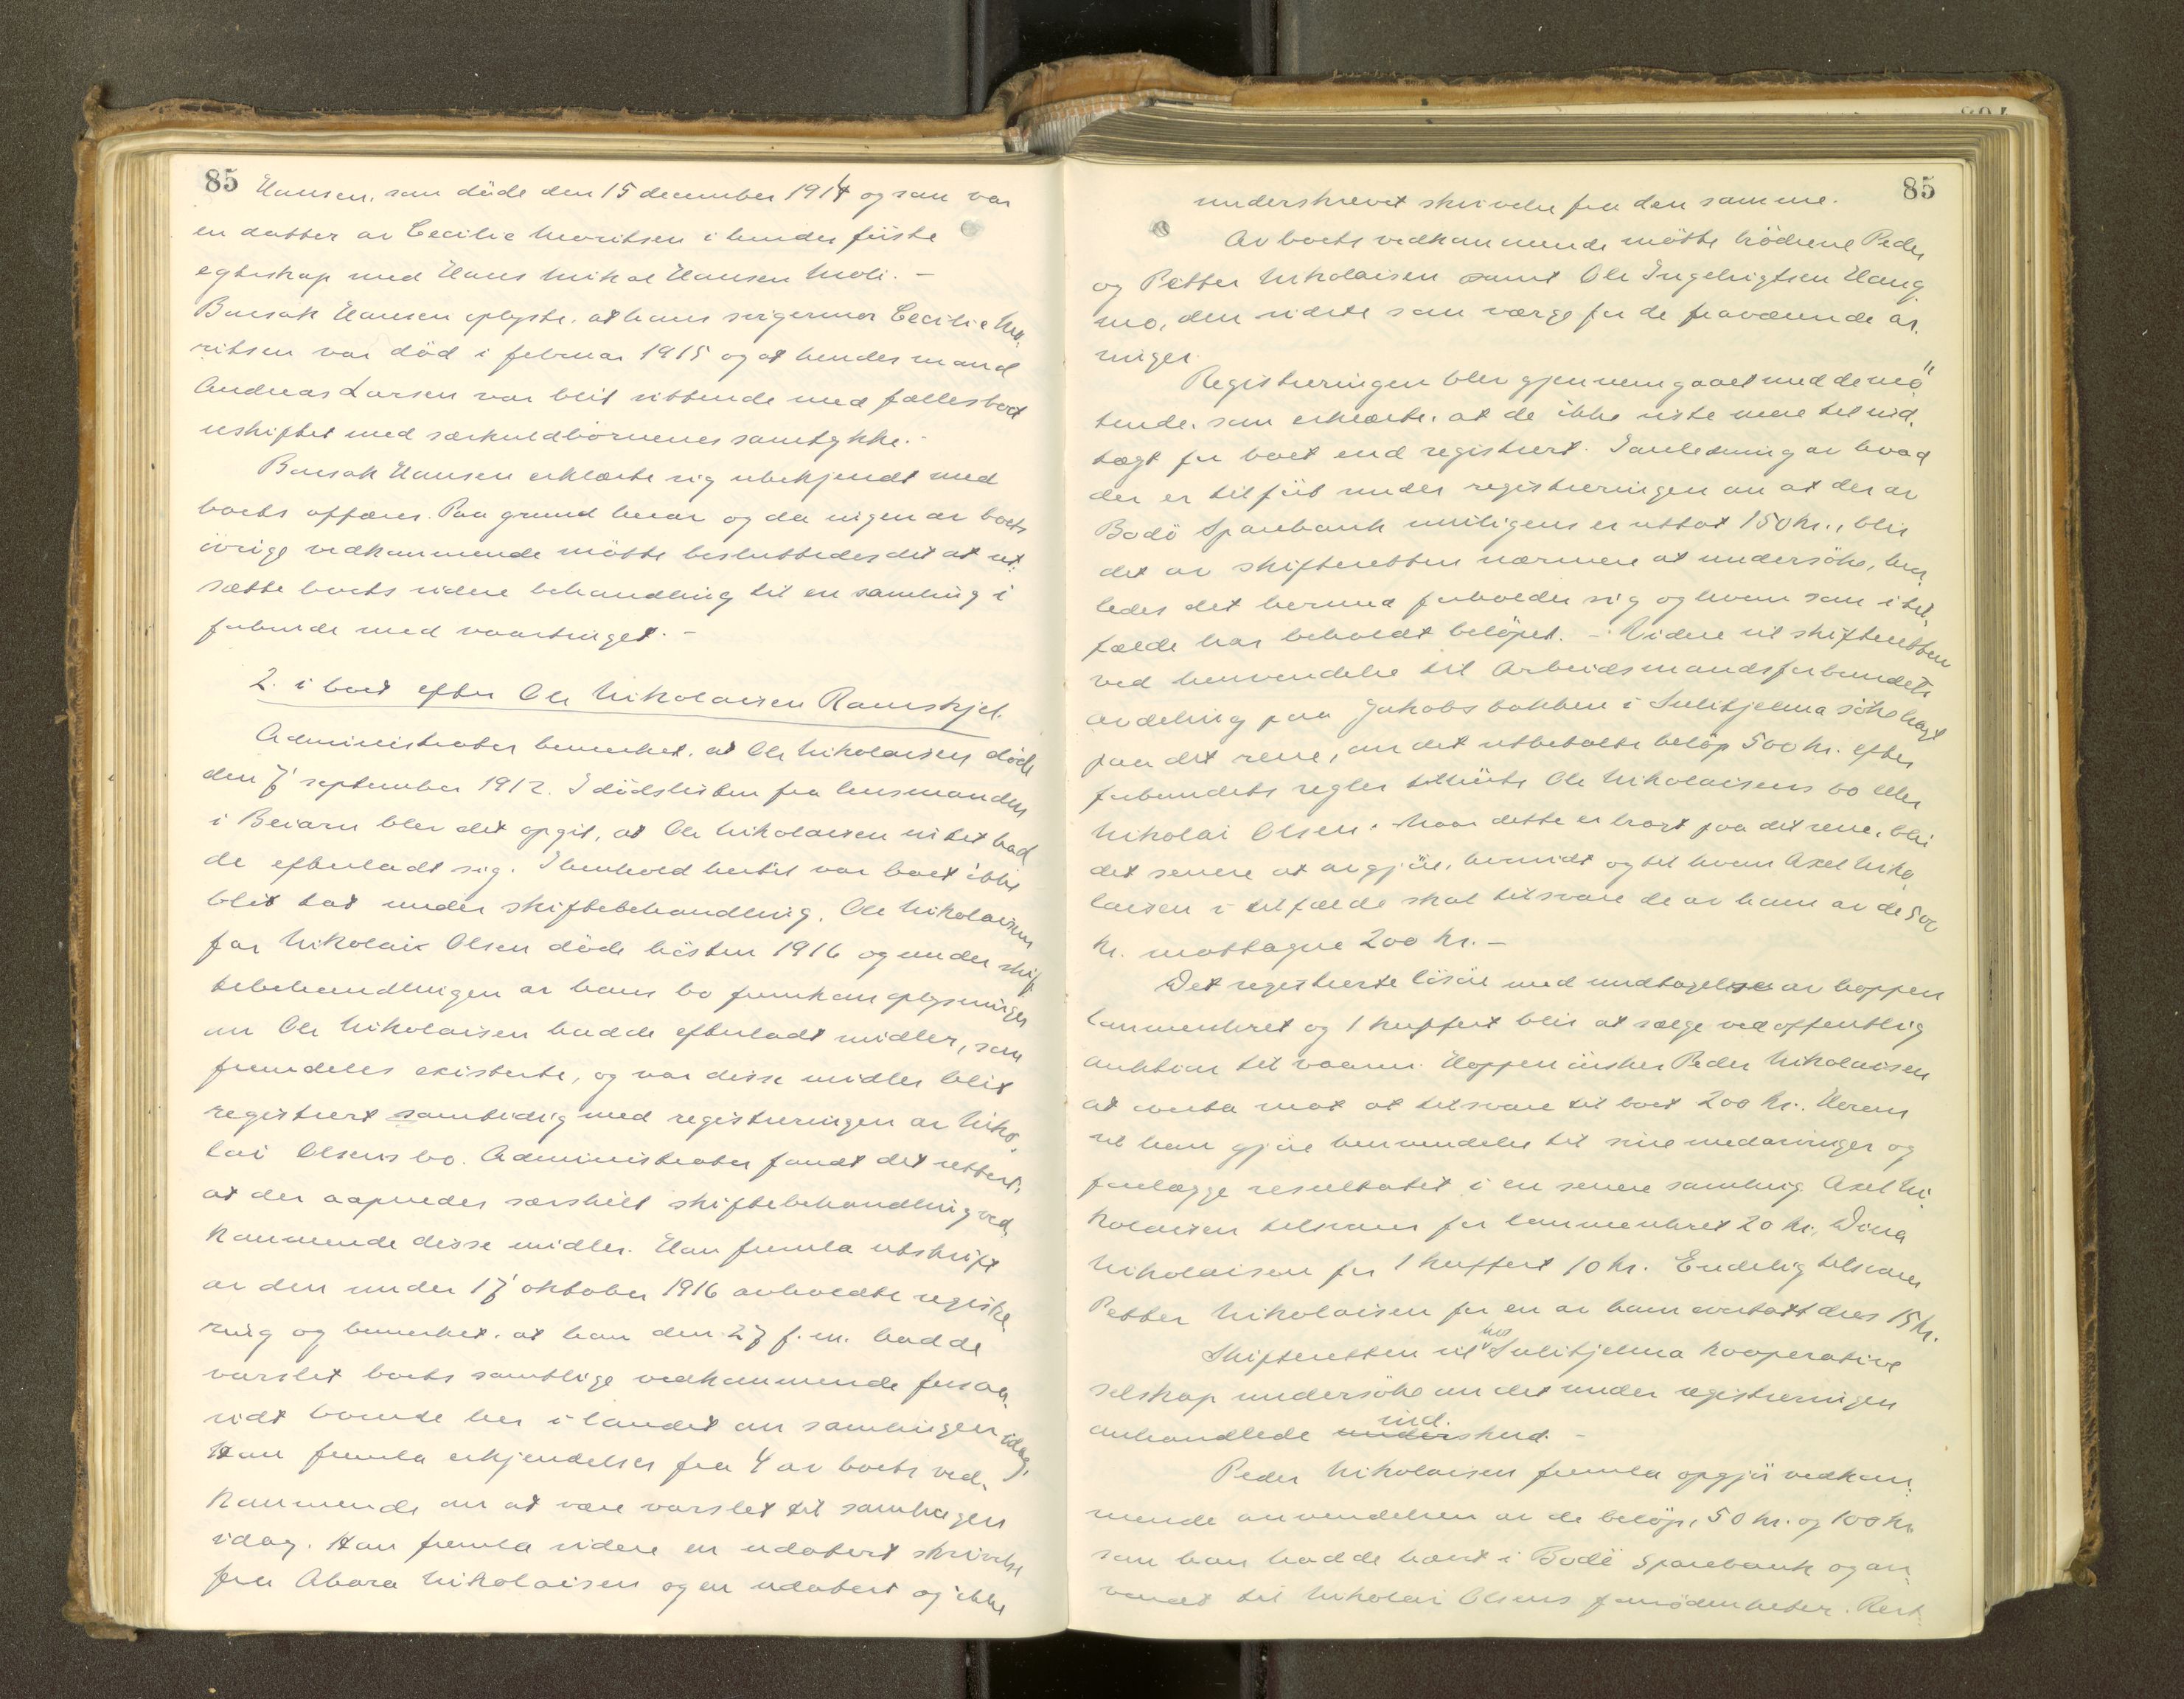 85
Hansen, som döde den 15 december 1914 og som var
en datter av Cecilie Moritsen i hendes første
egteskap med Hans Mikal Hansen Moli. -
Hansen oplyste, at hans svigermor Cecilie Mo-
ritsen var död i februar 1915 og at hendes mand
Andreas Larsen var blit sittende med fællesboet
uskiftet med særkuldbörnenes samtykke. -
Hansen erklærte sig ubekjendt med
boets affærer. Paa grund herav og da ingen av boets
övrige vedkommende mötte besluttedes det at ut-
sætte boets videre behandling til en samling i
forbinde med vaartinget. -
2. i boet efter Ole Nikolaisen Ramskjel.
Administrator bemerket, at Ole Nikolaisen döde
den 7' september 1912. I dödslisten fra lensmanden
i Beiarn blev det opgit, at Ole Nikolaisen intet had
de efterladt sig. I henhold hertil var boet ikke
blit tat under skiftebehandling. Ole Nikolaisens
far Nikolai Olsen döde hösten 1916 og under skif
tebehandlingen av hans bo fremkom oplysninger
om Ole Nikolaisen hadde efterladt midler, som
fremdeles existerte, og var disse midler blit
registrert samtidig med registreringen av Niko-
lai Olsens bo. Administrator fandt det rettest,
at der aapnedes særskilt skiftebehandling ved-
kommende disse midler. Han fremla utskrift
av den under 17' oktober 1916 avholdte registre-
ring og bemerket, at han den 27 f.m. hadde
varslet boets samtlige vedkommende forsaa-
vidt boende her i landet om samlingen idag.
Han fremla erkjendelser fra 4 av boets ved-
kommende om at være varslet til samlingen
idag. Han fremla videre en udatert skrivelse
fra Abara Nikolaisen og en udatert og ikke
85
underskrevet skrivelse fra den samme.
Av boets vedkommende mötte brödrene Peder
og Petter Nikolaisen samt Ole Ingebrigtsen Haug-
mo, den sidste som værge for de fraværende ar-
vinger
Registreringen blev gjennemgaaet med de mö"
tende, som erklærte, at de ikke viste mere til ind-
tægt for boet end registrert. I anledning av hvad
der er tilfört under registreringen om at der av
Bodö Sparebank muligens er uttat 150 kr., blir
det av skifteretten nærmere at undersöke, hvor-
ledes det hermed forholder sig og hvem som i til-
fælde har beholdt belöpet. - Videre vil skifteretten
ved henvendelse til Arbeidsmandsforbundets
avdeling paa Jakobsbakken i Sulitjelma söke bragt
paa det rene, om det utbetalte belöp 500 kr. efter
forbundets regler tilhörte Ole Nikolaisens bo eller
Nikolai Olsen. Naar dette er bragt paa det rene, blir
det senere at avgjöre, hvorvidt og til hvem Axel Niko-
laisen i tilfælde skal tilsvare de av ham av de 500
kr. mottagne 200 kr. -
Det registrerte lösöre med undtagelse av hoppen
lommeuhret og 1 kuffert blir at sælge ved offentlig
auktion til vaaren. Hoppen önsker Peder Nikolaisen
at overta mot at tilsvare til boet 200 kr. Herom
vil han gjöre henvendelse til sine medarvinger og
forelægge resultatet i en senere samling. Axel Ni-
kolaisen tilsvarer for lommeuhret 20 kr., Dina
Nikolaisen for 1 kuffert 10 kr. Endelig tilsvarer
Petter Nikolaisen for en av ham overtatt dres 15 kr.
Skifteretten vil hos Sulitjelma Kooperative
selskap undersöke om det under registreringen
anhandlede underskud. - ind.
Peder Nikolaisen fremla opgjör vedkom-
mende anvendelsen av de belöp, 50 kr. og 100 kr.
som han hadde hævt i Bodö Sparebank og an-
vendt til Nikolai Olsens fornödenheter. Rest